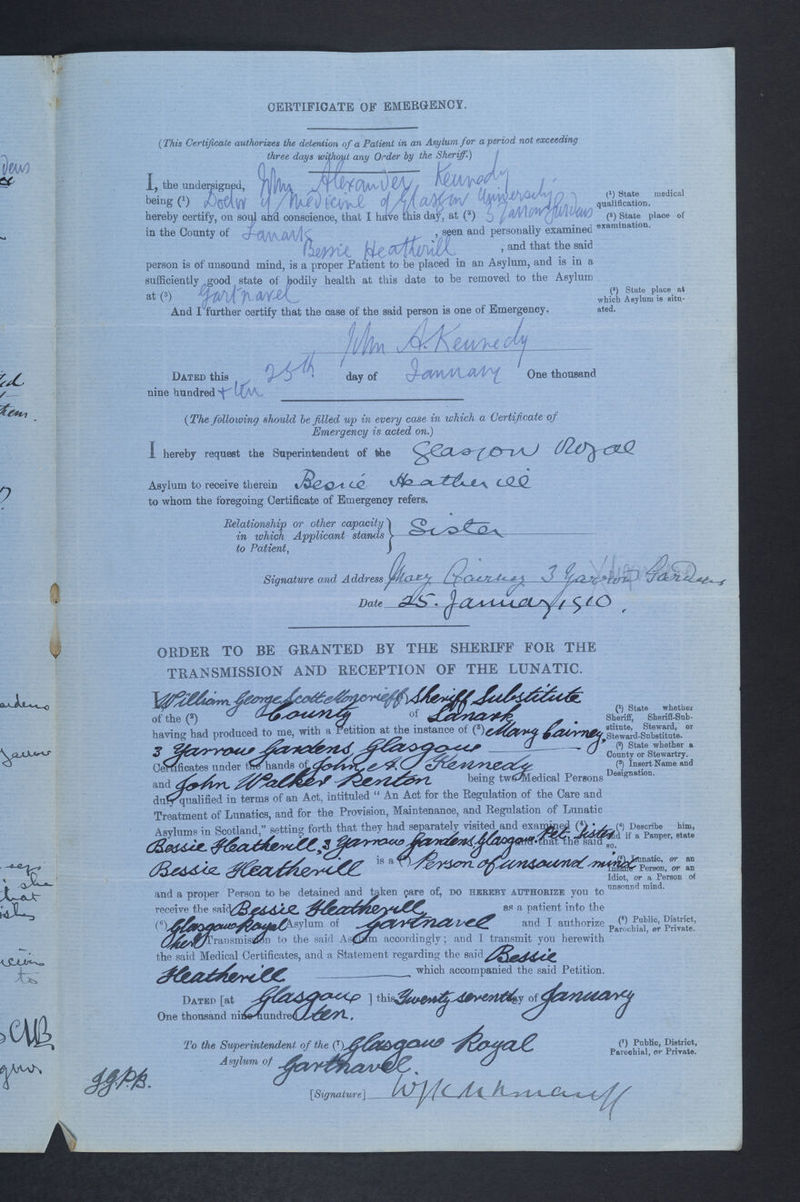 CERTIFICATE OF EMERGENCY.
(This Certificate authorizes the detention of a Patient in an Asylum for a period not exceeding
three days without any Order by the Sheriff.)
I, the undersigned, John Alexander Kennedy
being (¹) Doctor of Medicine of Glasgow University (¹) State medical qualification.
hereby certify, on soul and conscience, that I have this day, at (²) 3 Yarrow Gardens (²) State place of examination.
in the County of Lanark, seen and personally examined
Bessie Heatherill, and that the said
person is of unsound mind, is a proper Patient to be placed in an Asylum, and is in a
sufficiently good state of bodily health at this date to be removed to the Asylum
at (³) Gartnavel (³) State place at which Asylum is situ-ated.
And I further certify that the case of the said person is one of Emergency.
John A. Kennedy
DATED this 25th day of January One thousand
nine hundred & ten
(The following should be filled up in every case in which a Certificate of
Emergency is acted on.)
I hereby request the Superintendent of the Glasgow Royal
Asylum to receive therein Bessie Heatherill
to whom the foregoing Certificate of Emergency refers.
Relationship or other capacity
in which Applicant stands } Sister
to Patient,
Signature and Address Mary Cairney 3 Yarrow Gardens
Date 25. January 1910.
ORDER TO BE GRANTED BY THE SHERIFF FOR THE
TRANSMISSION AND RECEPTION OF THE LUNATIC.
I William George Scott Moncrieff Sheriff Substitute
of the (²) County of Lanark (¹) State whether Sheriff, Sheriff-Sub-stitute, Steward, or Steward-Substitute.
having had produced to me, with a Petition at the instance of (³) Mary Cairney,
3 Yarrow Gardens, Glasgow (²) State whether a County or Stewartry.
Certificates under the hands of John A. Kennedy (³) Insert Name and Designation.
and John Walker Renton being two Medical Persons
duly qualified in terms of an Act, intituled "An Act for the Regulation of the Care and
Treatment of Lunatics, and for the Provision, Maintenance, and Regulation of Lunatic
Asylums in Scotland," setting forth that they had separately visited and examined (⁴)
Bessie Heatherill, 3 Yarrow Gardens, Glasgow. Pet. Sister and that the said (⁴) Describe him, and if a Pauper, state so.
Bessie Heatherill is a (⁵) Person of unsound mind (⁵) Lunatic, or an Insane Person, or an Idiot, or a Person of unsound mind.
and a proper Person to be detained and taken care of, DO HEREBY AUTHORIZE you to
receive the said Bessie Heatherill as a patient into the
(⁶) Glasgow Royal Asylum of Gartnavel and I authorize (⁶) Public, District, Parochial, or Private.
her Transmission to the said Asylum accordingly; and I transmit you herewith
the said Medical Certificates, and a Statement regarding the said Bessie
Heatherill which accompanied the said Petition.
DATED [at Glasgow ] this Twenty seventh day of January
One thousand nine hundred & ten.
To the Superintendent of the (⁷) Glasgow Royal (⁷) Public, District, Parochial, or Private.
Asylum of Gartnavel.
[Signature]